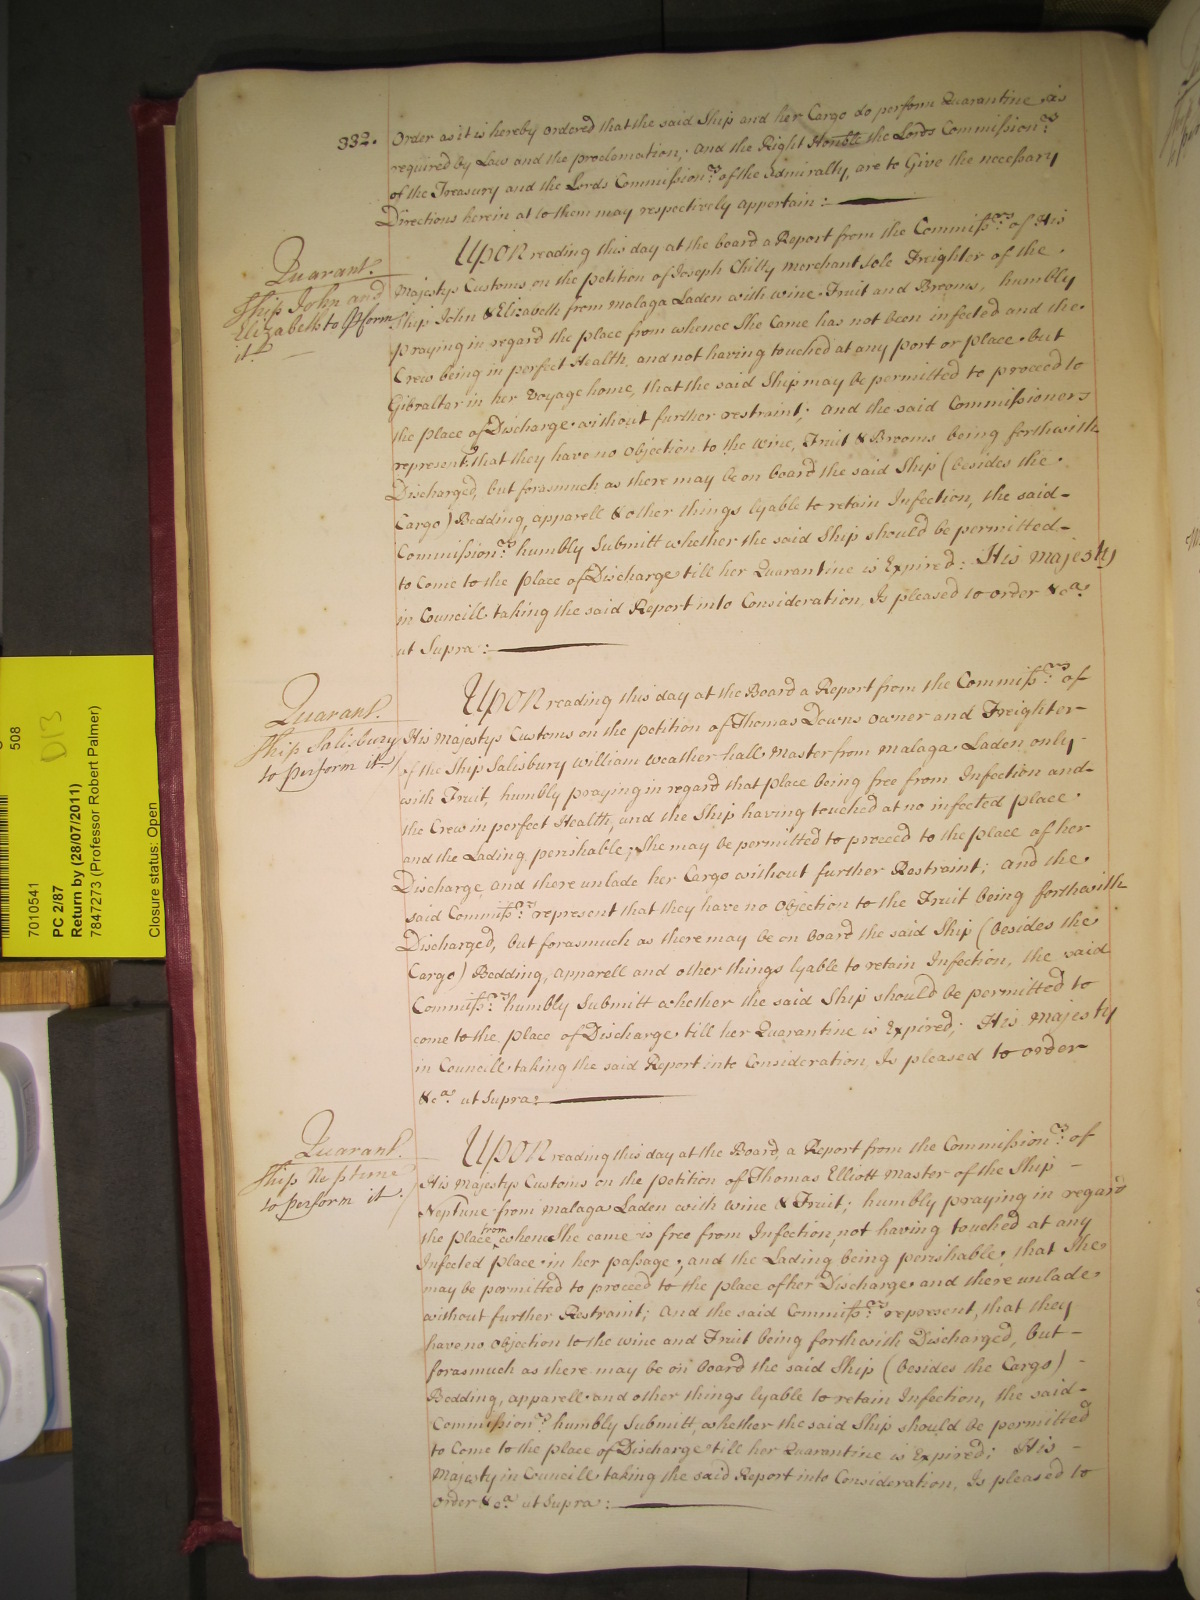 332.
Order as it is hereby ordered that the said Ship and her Cargo do perform Quarantine as
required by Law and the proclamation, And the Right Honble the Lords Commission.rs
of the Treasury and the Lords Commission.rs of the Admiralty, are to Give the necessary
Directions herein as to them may respectively appertain:
Quarant.
Ship John and
Elizabeth to pform
it
Upon reading this day at the board a Report from the Commiss.rs of His
Majestys Customs on the petition of Joseph Chitty merchant sole Freighter of the
Ship John & Elizabeth from Malaga Laden with wine Fruit and Brooms, humbly
praying in regard the place from whence She Came has not been infected and the
Crew being in perfect Health, and not having touched at any port or place but
Gibralter in her voyage home, that the said Ship may be permitted to proceed to
the place of Discharge without further restraint; and the said Commissioners
represent that they have no objection to the wine, Fruit & Brooms being forthwith
Discharged, but forasmuch as there may be on board the said Ship (besides the
Cargo) Bedding, apparell & other things lyable to retain Infection, the said
Commission.rs humbly Submitt whether the said Ship should be permitted
to Come to the place of Discharge till her Quarantine is Expired: His Majesty
in Councill taking the said Report into Consideration, Is pleased to order &ca.
ut Supra:
Quarant.
Ship Salisbury
to perform it
Upon reading this day at the Board a Report from the Commiss.rs of
His Majestys Customs on the petition of Thomas Downs owner and Freighter
of the Ship Salisbury William Weather hall Master from Malaga Laden only
with Fruit, humbly praying in regard that place being free from Infection and
the Crew in perfect Health, and the Ship having touched at no infected place
and the Lading perishable; She may be permitted to proceed to the place of her
Discharge and there unlade her Cargo without further Restraint; and the
said Commiss.rs represent that they have no objection to the Fruit being forthwith
Discharged, but forasmuch as there may be on board the said Ship (besides the
Cargo) Bedding, apparell and other things lyable to retain Infection, the said
Commiss.rs humbly Submitt whether the said Ship should be permitted to
come to the place of Discharge till her Quarantine is Expired; His Majesty
in Councill taking the said Report into Consideration Is pleased to order
&ca. ut Supra:
Quarant.
Ship Neptune
to perform it.
Upon reading this day at the Board, a Report from the Commission.rs of
His Majestys Customs on the petition of Thomas Elliott Master of the Ship
Neptune from Malaga Laden with wine & Fruit; humbly praying in regard
the place from whence She came is free from Infection, not having touched at any
Infected place in her passage, and the Lading being perishable, that She
may be permitted to proceed to the place of her Discharge and there unlade
without further Restraint; and the said Commiss.rs represent, that they
have no objection to the wine and Fruit being forthwith Discharged, but
forasmuch as there may be on board the said Ship (besides the Cargo)
Bedding, apparell and other things lyable to retain Infection, the said
Commission.rs humbly Submitt, whether the said Ship should be permitted
to Come to the place of Discharge till her Quarantine is Expired; His
Majesty in Councill taking the said Report into Consideration, Is pleased to
order &ca. ut Supra:
508
D13
7010541
PC 2/87
Return by (28/07/2011)
7847273 (Professor Robert Palmer)
Closure status: Open